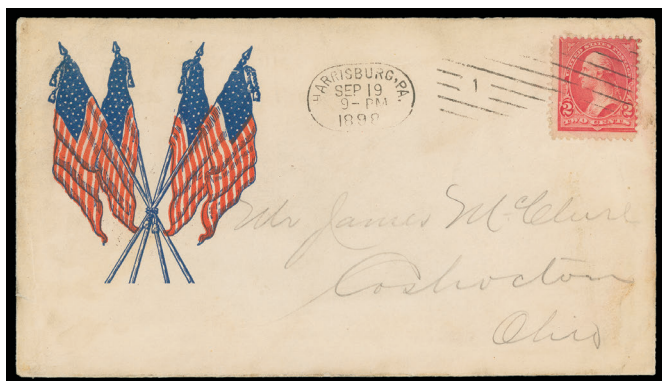 HARRISBURG, PA.
SEP 19
9-PM
1898
1
2 2
TWO CENTS
Mr James McClure
Coshocton
Ohio